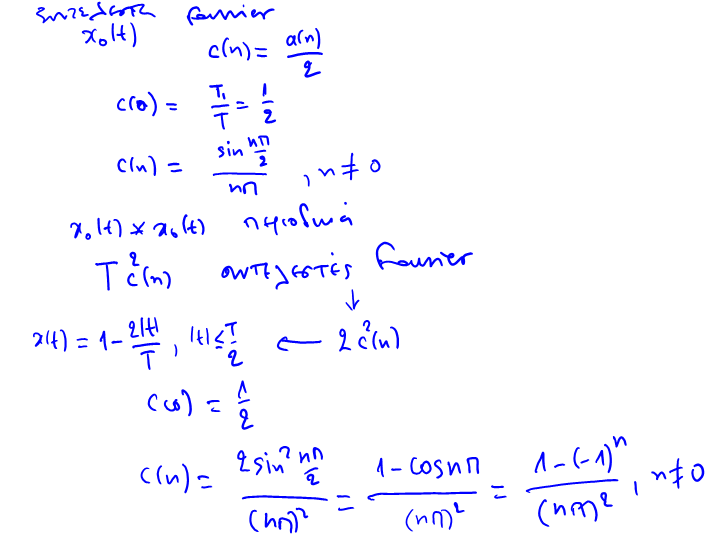 συντελεστών Fourier
x₀(t)
c(n) = a(n)/2
c(0) = T₁/T = 1/2
c(n) = sin(nπ/2)/nπ , n ≠ 0
x₀(t) * x₀(t) περιοδικά
T c²(n) συντελεστές Fourier
↓
x(t) = 1 - 2|t|/T , |t| ≤ T/2 ← 2c²(n)
c(0) = 1/2
c(n) = 2sin²(nπ/2)/(nπ)² = 1 - cosnπ/(nπ)² = 1-(-1)ⁿ/(nπ)² , n ≠ 0